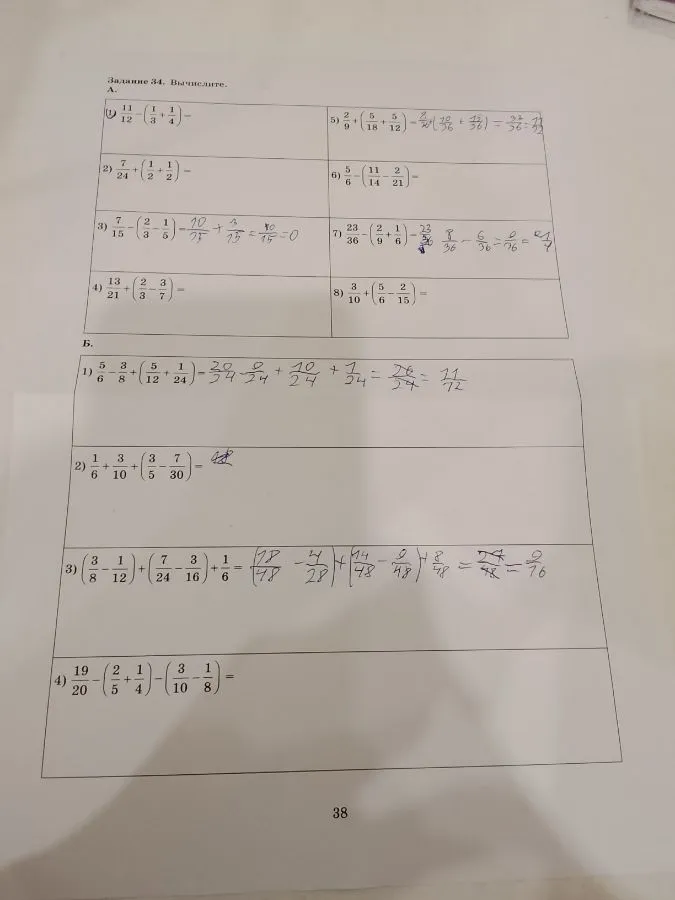 Задание 34. Вычислите.
А.
1) 11/12 − (1/3 + 1/4) =
5) 2/9 + (5/18 + 5/12) =
2) 7/24 + (1/2 + 1/2) =
6) 5/6 − (11/14 − 2/21) =
3) 7/15 − (2/3 − 1/5) = 10/15 + 3/15 = 10/15 = 0
7) 23/36 − (2/9 + 1/6) = 23/36 8/36 − 6/36 = 9/36 =
4) 13/21 + (2/3 − 3/7) =
8) 3/10 + (5/6 − 2/15) =
Б.
1) 5/6 − 3/8 + (5/12 + 1/24) = 20/24 − 9/24 + 10/24 + 1/24 = 26/24 = 11/12
2) 1/6 + 3/10 + (3/5 − 7/30) =
3) (3/8 − 1/12) + (7/24 − 3/16) + 1/6 = (18/48 − 4/28) + (14/48 − 9/48) + 8/48 = 27/48 = 9/16
4) 19/20 − (2/5 + 1/4) − (3/10 − 1/8) =
38